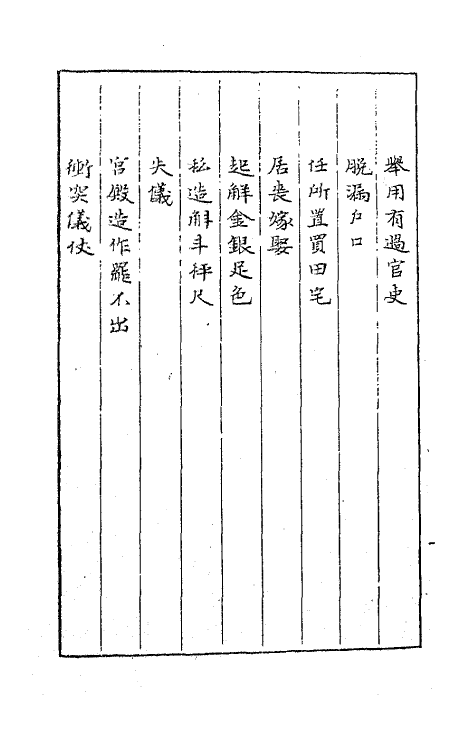 舉用有過官吏
脫漏户口
任所置買田宅
居喪嫁娶
起解金銀足色
私造斛斗秤尺
失儀
宫殿造作罷不出
衝突儀仗